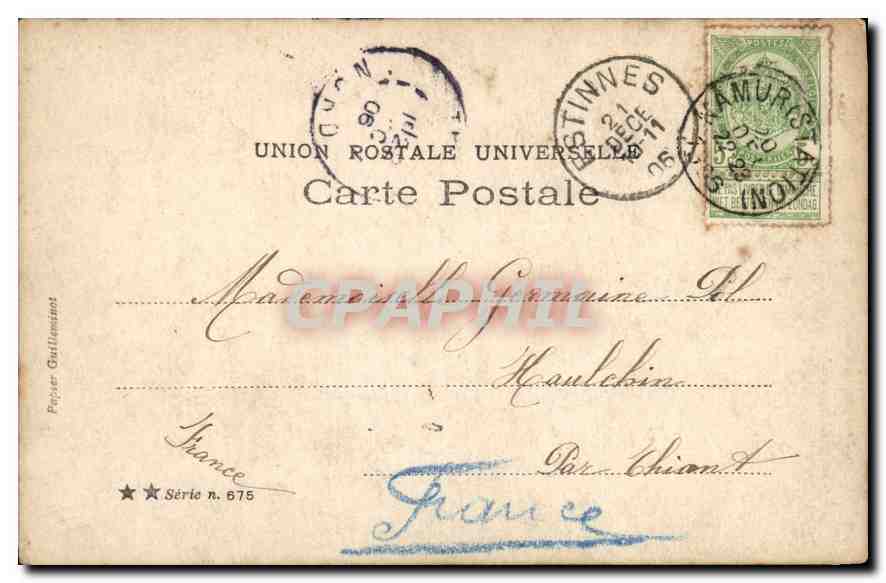 ESTINNES
21
DECE
10-11
06
NAMUR (STATION)
20
22-23
UNION POSTALE UNIVERSELLE
Carte Postale
CPAPHIL
Mademoiselle Germaine Pol
Haulchin
Par Thiant
France
France
★★ Série n. 675
Papier Guilleminot